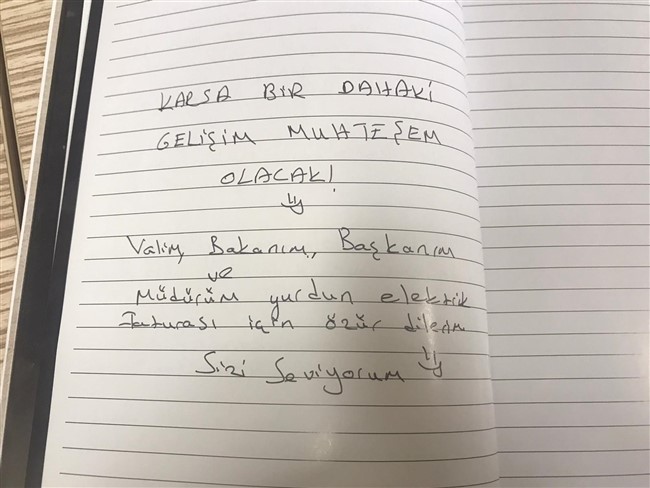 KARSA BİR DAHAKİ
GELİŞİM MUHTEŞEM
OLACAK!
Valim, Bakanım, Başkanım
ve
Müdürüm yurdun elektrik
faturası için özür dilerim
Sizi Seviyorum